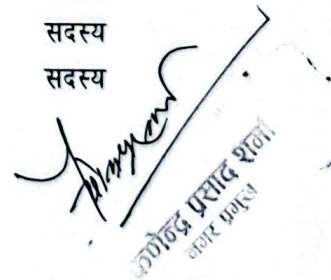 सदस्य
सदस्य
प्रसाद शर्मा
नगर प्रमुख